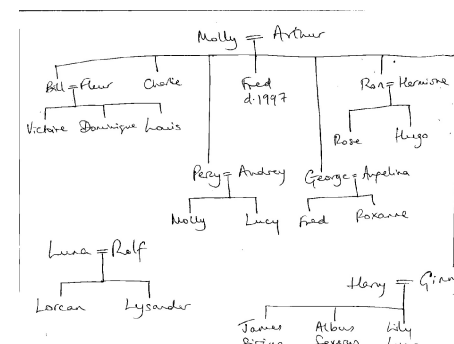 Molly = Arthur
Bill = Fleur Charlie Fred Ron = Hermione
d.1997
Victoire Dominique Louis
Rose Hugo
Percy = Audrey George = Angelina
Molly Lucy Fred Roxanne
Luna = Rolf
Harry = Ginn
Lorcan Lysander
James Albus Lily